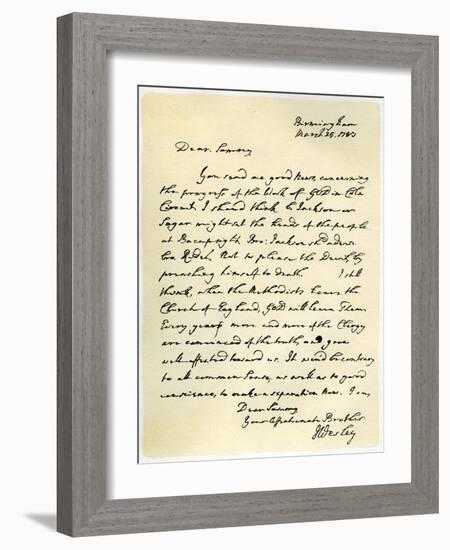 Birmingham
March 25, 1787
Dear Sammy
You send me good News, concerning
the progress of the Work of God in Cole
I should think Br. Jackson or
Sagar might set the heads of the people
at Bacup right. Bro. Jackson shd advise
Bro. Ridel, Not to please the Devil, by
preaching himself to death. I still
think, when the Methodists leave the
Church of England, God will leave Them.
Every year more and more of the Clergy
are convinced of the truth, and grow
well-affected toward us. It wou'd be contrary
to all common Sense, as well as to good
conscience, to make a separation Now. I am,
Dear Sammy
Your Affectionate Brother
J Wesley